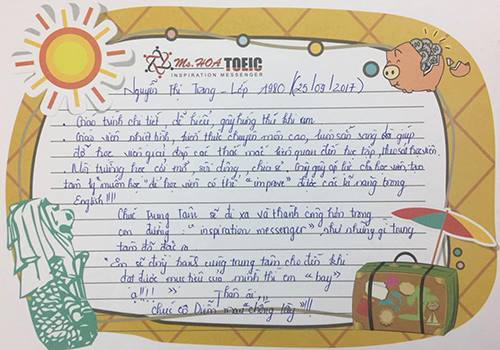 Ms.HOA TOEIC
INSPIRATION MESSENGER
Nguyễn Thị Trang - Lớp 1980 (25/09/2017)
- Giáo trình chi tiết, dễ hiểu, gây hứng thú khi
- Giáo viên nhiệt tình, kiến thức chuyên môn cao, luôn sẵn sàng giúp
đỡ học viên giải đáp các thắc mắc liên quan đến học tập, của học viên.
- Môi trường học cởi mở, sôi động, chia sẻ cho học viên, tạo
tâm lý muốn học để học viên có thể "improve" được các kĩ năng trong
English!!!!
Chúc Trung Tâm sẽ đi xa và thành công hơn trong
con đường "inspiration messenger" như những gì trung
tâm đã đặt ra
Em sẽ đồng hành cùng trung tâm cho đến khi
đạt được mục tiêu của mình thì em "bay"
ạ!!!!
Thân ái,
Chúc cô mau chồng lấy "!!!